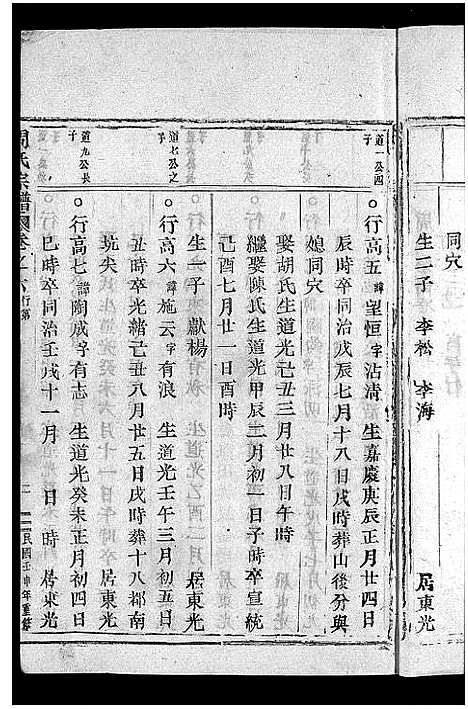 同穴
生二子 李松 李海 居東光
道一公四子
○行高五 諱望恒 字沾清 生嘉慶庚辰正月廿四日
辰時卒同治戊辰七月十八日戌時葬山後分與
媳同穴
娶胡氏生道光己丑三月廿八日午時
繼娶陳氏生道光甲辰二月初一日子時卒宣統
己酉七月廿一日酉時
生一子 獻楊 居東光
道七公之子
○行高六 諱施云 字有浪 生道光壬午三月初五日
丑時卒光緒己丑八月廿五日戌時葬十八都南
坑尖 居東光
道九公長子
○行高七 諱陶成 字有志 生道光癸未正月初四日
巳時卒同治壬戌十一月 日 時 居東光
周氏宗譜 卷之六 行第 民國壬申年重修